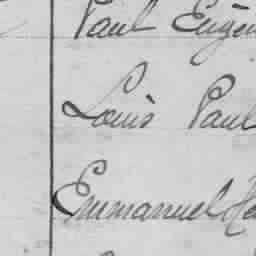 Paul Eugèn
Louis Paul
Emmanuel He